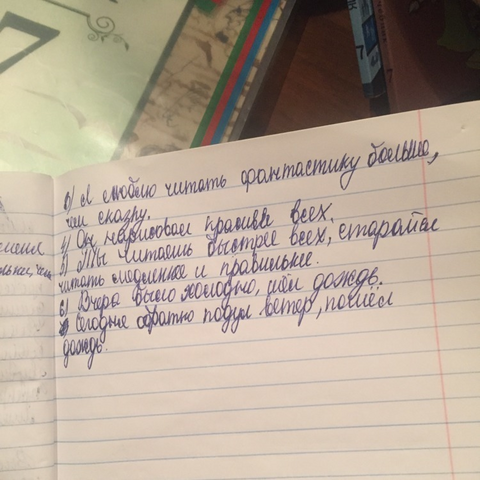 в) Я люблю читать фантастику больше,
чем сказку.
г) Он нарисовал красивее всех.
Ты читаешь быстрее всех, старайся
читать медленнее и правильнее.
Вчера было холодно, шёл дождь.
Сегодня обратно подул ветер, пошёл
дождь.
7
7